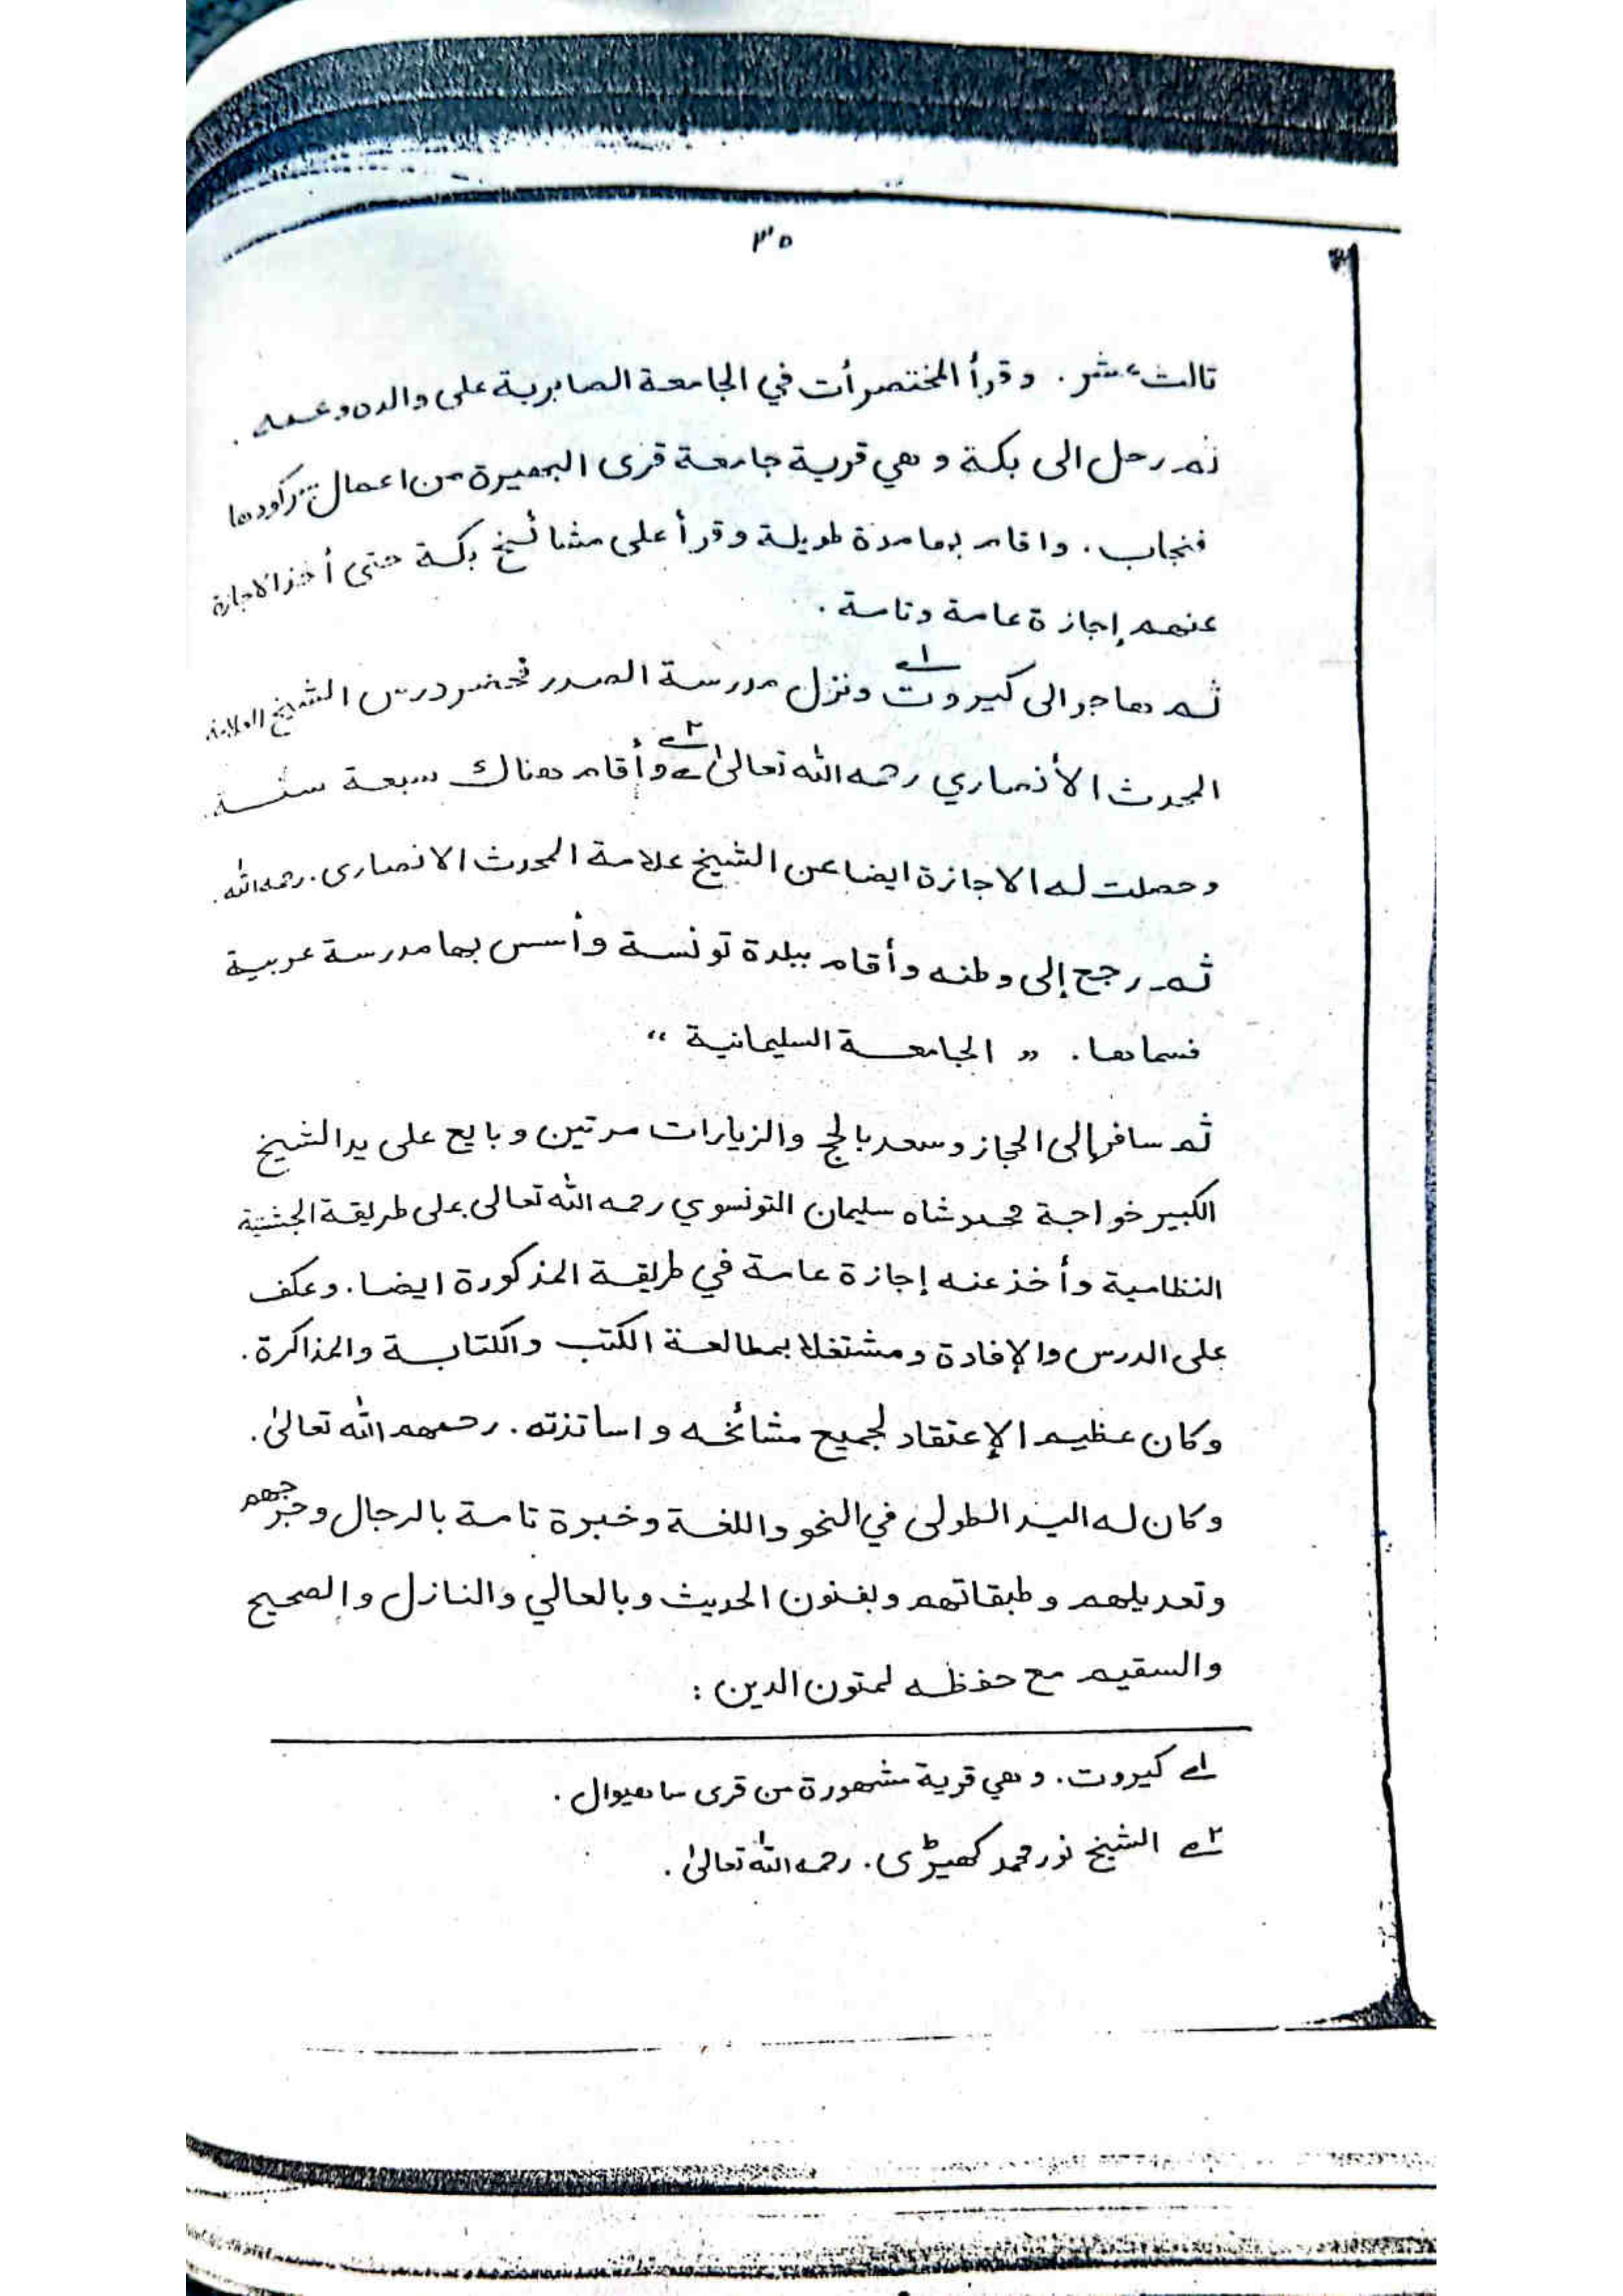 ٣٥
ثالث عشر. وقرأ المختصرأت في الجامعة الصابرية على والده وعمه.
ثم رحل الى بكة وهي قرية جامعة قرى البصيرة من اعمال
فنجاب. واقام بها مدة طويلة وقرأ على مشائخ بكة حتى أخذ الاجازة
عنهم إجازة عامة وتامة.
ثم هاجر الى كيروت ١ ونزل مدرسة الصدر فحضر درس الشيخ العلامة
المحدث الأنصاري رحمه الله تعالىٰ ٢ وأقام هناك سبعة سنة.
وحصلت له الاجازة ايضا عن الشيخ علامة المحدث الانصارى. رحمه الله.
ثم رجع إلى وطنه وأقام ببلدة تونسة وأسس بها مدرسة عربية
فسماها. « الجامعة السليمانية »
ثم سافر إلى الحجاز وسعد بالحج والزيارات مرتين وبايع على يد الشيخ
الكبير خواجة محمد شاه سليمان التونسوي رحمه الله تعالى على طريقة الجشتية
النظامية وأخذ عنه إجازة عامة في طريقة المذكورة ايضا. وعكف
على الدرس والإفادة ومشتغلا بمطالعة الكتب والكتابة والمذاكرة.
وكان عظيم الإعتقاد لجميع مشائخه واساتذته. رحمهم الله تعالىٰ.
وكان له اليد الطولى في النحو واللغة وخبرة تامة بالرجال وجرحهم
وتعديلهم وطبقاتهم وبفنون الحديث وبالعالي والنازل والصحيح
والسقيم مع حفظه لمتون الدين:
١ كيروت. وهي قرية مشهورة من قرى ساهيوال.
٢ الشيخ نور محمد كھیڑی. رحمه الله تعالىٰ.